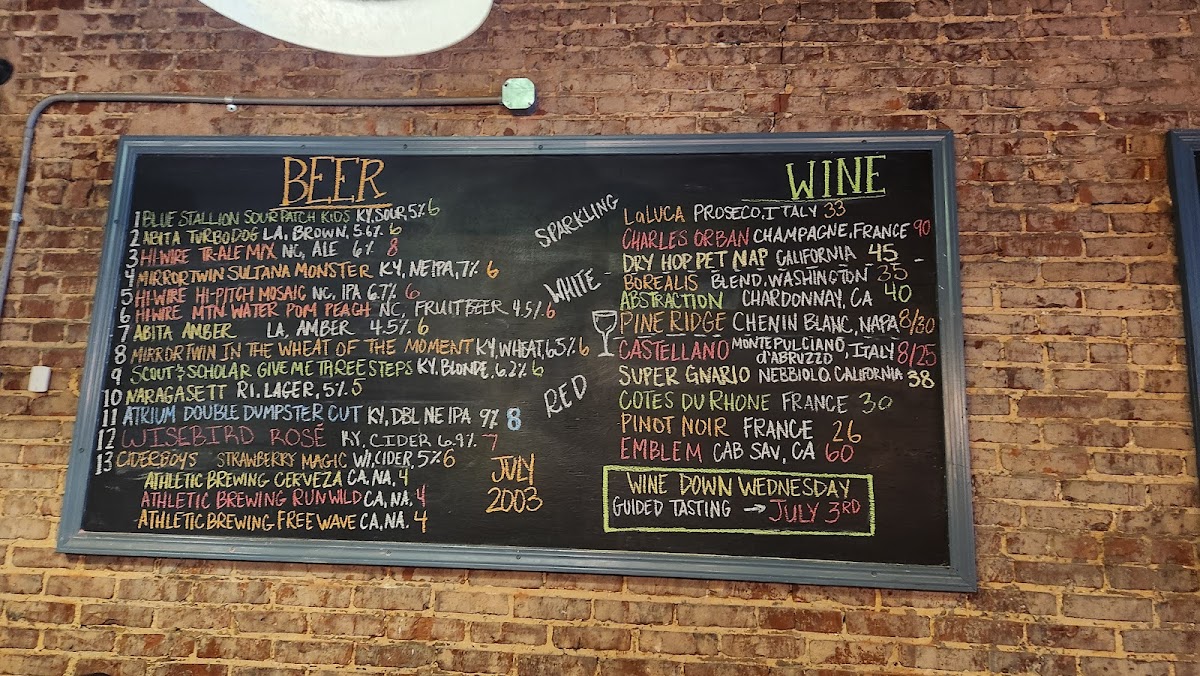 BEER
1 BLUE STALLION SOUR PATCH KIDS KY, SOUR, 5% 6
2 ABITA TURBO DOG LA, BROWN, 5.6% 6
3 HI-WIRE TR-ALE MIX NC, ALE 6% 8
4 MIRROR TWIN SULTANA MONSTER KY, NEIPA, 7% 6
5 HI-WIRE HI-PITCH MOSAIC NC, IPA 6.7% 6
6 HI-WIRE MTN. WATER POM PEACH NC, FRUIT BEER 4.5% 6
7 ABITA AMBER LA, AMBER 4.5% 6
8 MIRROR TWIN IN THE WHEAT OF THE MOMENT KY, WHEAT, 6.5% 6
9 SCOUT & SCHOLAR GIVE ME THREE STEPS KY, BLONDE, 6.2% 6
10 NARAGASETT RI, LAGER, 5% 5
11 ATRIUM DOUBLE DUMPSTER CUT KY, DBL NE IPA 9% 8
12 WISEBIRD ROSÉ KY, CIDER 6.9% 7
13 CIDERBOYS STRAWBERRY MAGIC WI, CIDER, 5% 6
ATHLETIC BREWING CERVEZA CA, NA, 4
ATHLETIC BREWING RUN WILD CA, NA, 4
ATHLETIC BREWING FREE WAVE CA, NA. 4
JULY
2003
WINE
SPARKLING
LALUCA PROSECO, ITALY 33
CHARLES ORBAN CHAMPAGNE, FRANCE 90
DRY HOP PET NAP CALIFORNIA 45
WHITE
BOREALIS BLEND, WASHINGTON 35
ABSTRACTION CHARDONNAY, CA 40
PINE RIDGE CHENIN BLANC, NAPA 8/30
RED
CASTELLANO MONTEPULCIANO d'ABRUZZO, ITALY 8/25
SUPER GNARIO NEBBIOLO, CALIFORNIA 38
COTES DU RHONE FRANCE 30
PINOT NOIR FRANCE 26
EMBLEM CAB SAV, CA 60
WINE DOWN WEDNESDAY
GUIDED TASTING → JULY 3RD